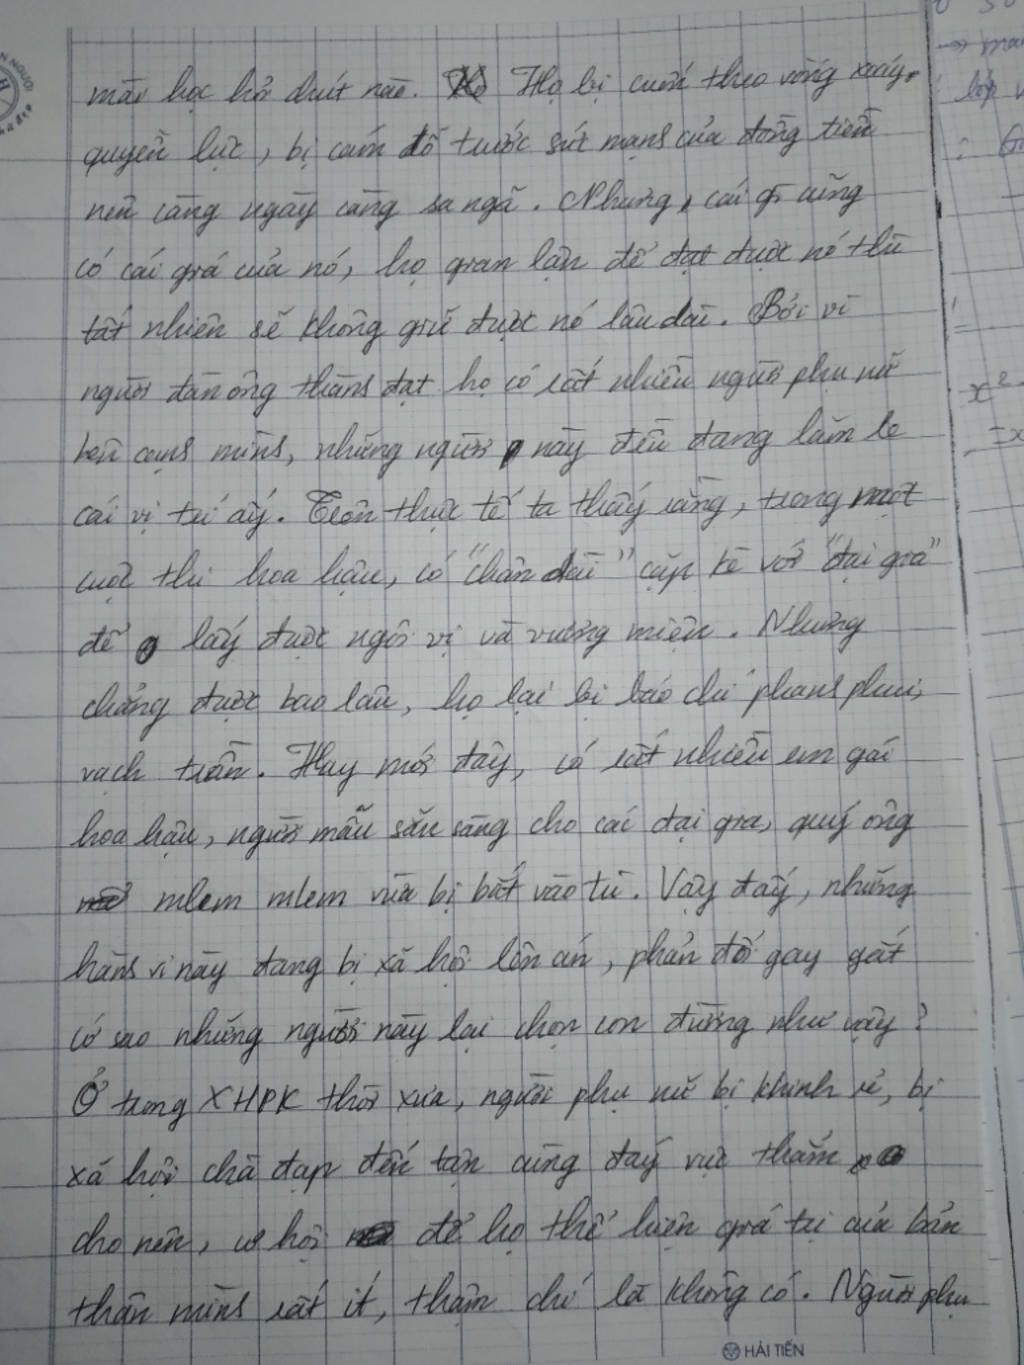 mảy học hỏi chút nào. Họ bị cuốn theo vòng xoáy
quyền lực, bị cám dỗ trước sức mạnh của đồng tiền
nên càng ngày càng sa ngã. Nhưng, cái gì cũng
có cái giá của nó, họ gian lận để đạt được nó thì
tất nhiên sẽ không giữ được nó lâu dài. Bởi vì
người đàn ông thành đạt họ có rất nhiều người phụ nữ
bên cạnh mình, những người này đều đang lăm le
cái vị trí ấy. Trên thực tế ta thấy rằng, trong một
cuộc thi hoa hậu, có "chân dài" cặp kè với "đại gia"
để lấy được ngôi vị và vương miện. Nhưng
chẳng được bao lâu, họ lại bị báo chí phanh phui,
vạch trần. Hay mới đây, có rất nhiều em gái
hoa hậu, người mẫu sẵn sàng cho các đại gia, quý ông
mlem mlem vừa bị bắt vào tù. Vậy đấy, những
hành vi này đang bị xã hội lên án, phản đối gay gắt
cớ sao những người này lại chọn con đường như vậy?
Ở trong XHPK thời xưa, người phụ nữ bị khinh rẻ, bị
xã hội chà đạp đến tận cùng đáy vực thẳm
cho nên, cơ hội để họ thể hiện giá trị của bản
thân mình rất ít, thậm chí là không có. Người phụ
HẢI TIẾN
lớp
x²